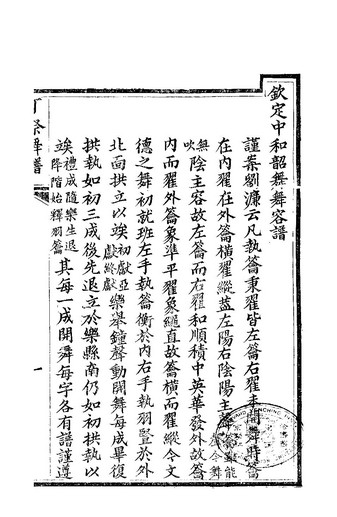 欽定中和韶舞舞容譜
謹案劉濂云凡執籥秉翟皆左籥右翟未開舞時籥
在内翟在外籥橫翟縱蓋左陽右陰陽主聲
無吹陰主容故左籥而右翟和順積中英華發外故籥
内而翟外籥象準平翟象繩直故籥橫而翟縱今文
德之舞初就班左手執籥衡於内右手執羽豎於外
北面拱立以竢初獻亞獻終獻樂舉鐘聲動開舞每成畢復
拱執如初三成後先退立於樂縣南仍如初拱執以
竢禮成隨樂生退降階始釋羽籥其每一成開舞每字各有譜謹遵
丁祭舞譜
一